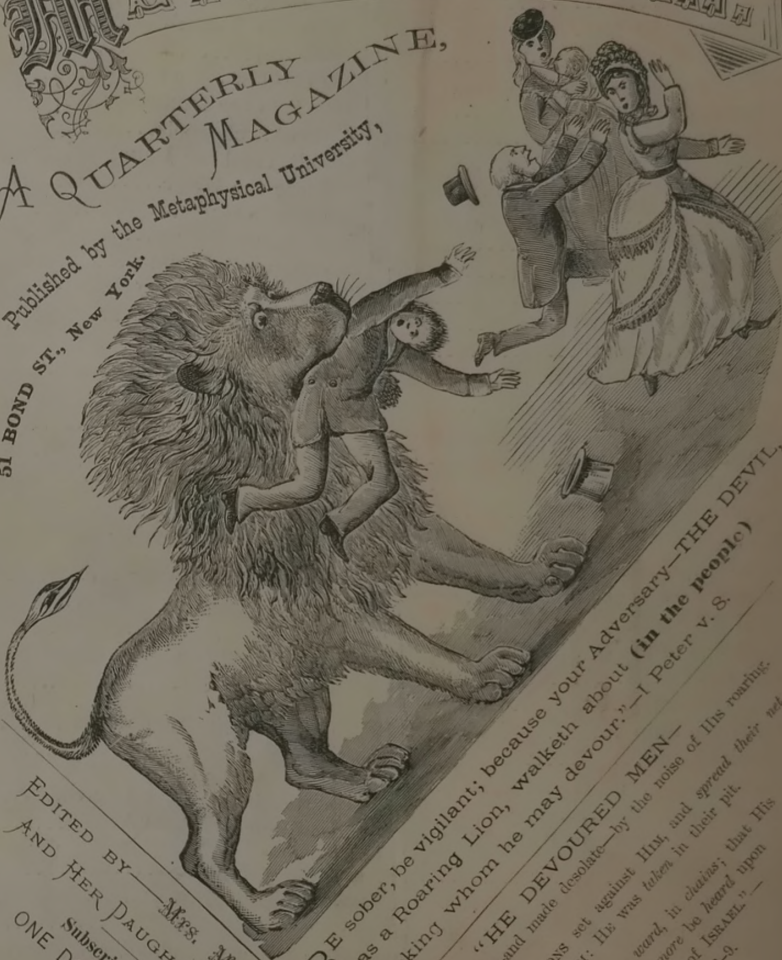 A QUARTERLY
MAGAZINE,
Published by the Metaphysical University,
51 BOND ST., New York.
BE sober, be vigilant; because your Adversary—THE DEVIL,
as a Roaring Lion, walketh about (in the people)
king whom he may devour."—I Peter v. 8.
"HE DEVOURED MEN—
and made desolate—by the noise of HIS roaring.
set against HIM, and spread their net
: HE was taken in their pit.
ward, in chains; that His
more be heard upon
of ISRAEL"—
EDITED BY—Mrs.
AND HER DAUGH
Subscri
ONE D